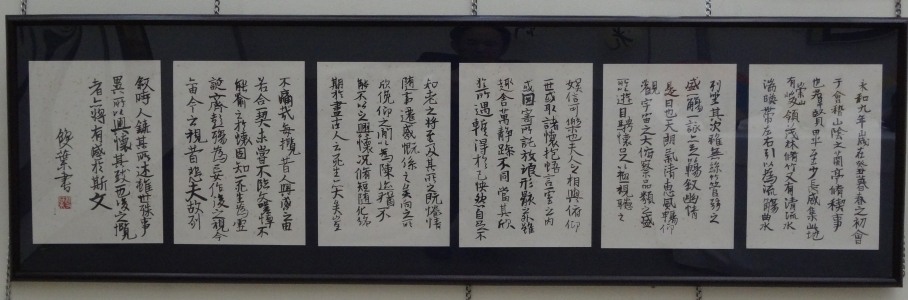 永和九年歲在癸丑暮春之初會
于會稽山陰之蘭亭脩稧事
也羣賢畢至少長咸集此地
有崇山峻領茂林脩竹又有清流激
湍暎帶左右引以為流觴曲水
列坐其次雖無絲竹管弦之
盛一觴一詠亦足以暢敘幽情
是日也天朗氣清惠風和暢仰
觀宇宙之大俯察品類之盛
所以遊目騁懷足以極視聽之
娛信可樂也夫人之相與俯仰
一世或取諸懷抱悟言一室之內
或因寄所託放浪形骸之外雖
趣舍萬殊靜躁不同當其欣
於所遇暫得於己快然自足不
知老之將至及其所之既惓情
隨事遷感慨係之矣向之所
欣俛仰之間以為陳迹猶不
能不以之興懷況脩短隨化終
期於盡古人云死生亦大矣豈
不痛哉每攬昔人興感之由
若合一契未嘗不臨文嗟悼不
能喻之於懷固知一死生為虛
誕齊彭殤為妄作後之視今
亦由今之視昔悲夫故列
敘時人錄其所述雖世殊事
異所以興懷其致一也後之攬
者亦將有感於斯文
葉書